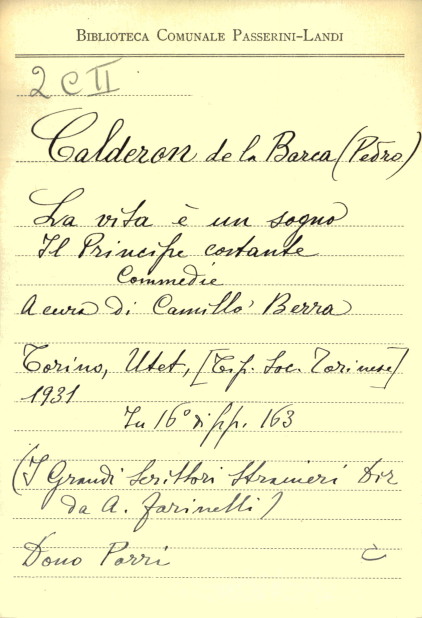 BIBLIOTECA COMUNALE PASSERINI-LANDI
2 C II
Calderon de la Barca (Pedro)
La vita è un sogno
Il Principe costante
Commedie
A cura di Camillo Berra
Torino, Utet, [Tip. Soc. Torinese]
1931
In 16° di pp. 163
(I Grandi Scrittori Stranieri Dir
da A. Farinelli)
Dono Porri